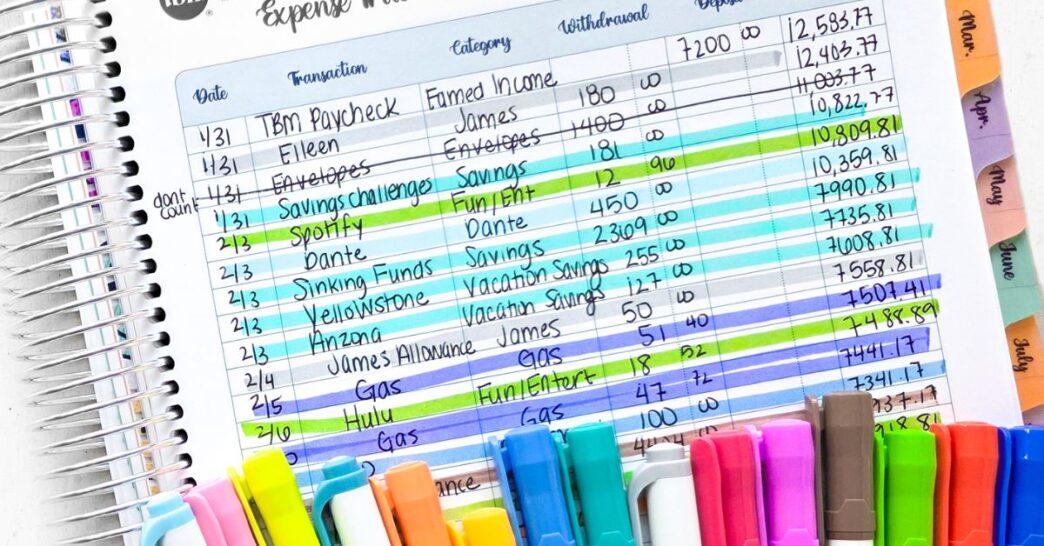 Expense
Date Transaction Category Withdrawal
1/31 TBM Paycheck Earned Income 7200 00 12,583.77
1/31 Eileen James 180 00 12,403.77
dont count 1/31 Envelopes Envelopes 1400 00 11,003.77
1/31 Savings challenges Savings 181 00 10,822.77
2/3 Spotify Fun/Ent 12 96 10,809.81
2/3 Dante Dante 450 00 10,359.81
2/3 Sinking Funds Savings 2369 00 7990.81
2/3 Yellowstone Vacation Savings 255 00 7735.81
2/3 Arizona Vacation Savings 127 00 7608.81
2/4 James Allowance James 50 00 7558.81
2/5 Gas Gas 51 40 7507.41
2/6 Hulu Fun/Entert 18 52 7488.89
Gas Gas 47 72 7441.17
100 00 7341.17
Mar.
Apr.
May
June
July